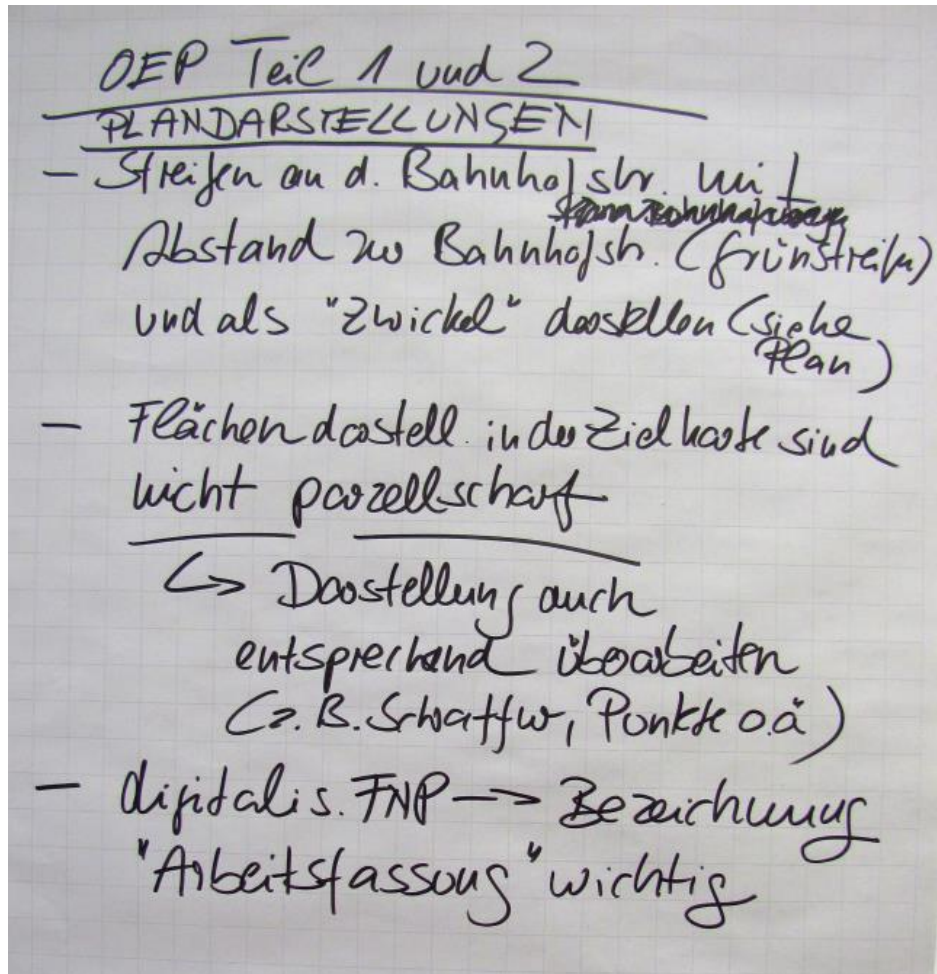 OEP Teil 1 und 2
PLANDARSTELLUNGEN
- Streifen an d. Bahnhofstr. mit
Abstand zur Bahnhofstr. (Grünstreifen)
und als "Zwickel" darstellen (siehe
Plan)
- Flächendarstell. in der Zielkarte sind
nicht parzellscharf
↳ Darstellung auch
entsprechend überarbeiten
(z.B. Schraffur, Punkte o.ä)
- digitalis. FNP → Bezeichnung
"Arbeitsfassung" wichtig